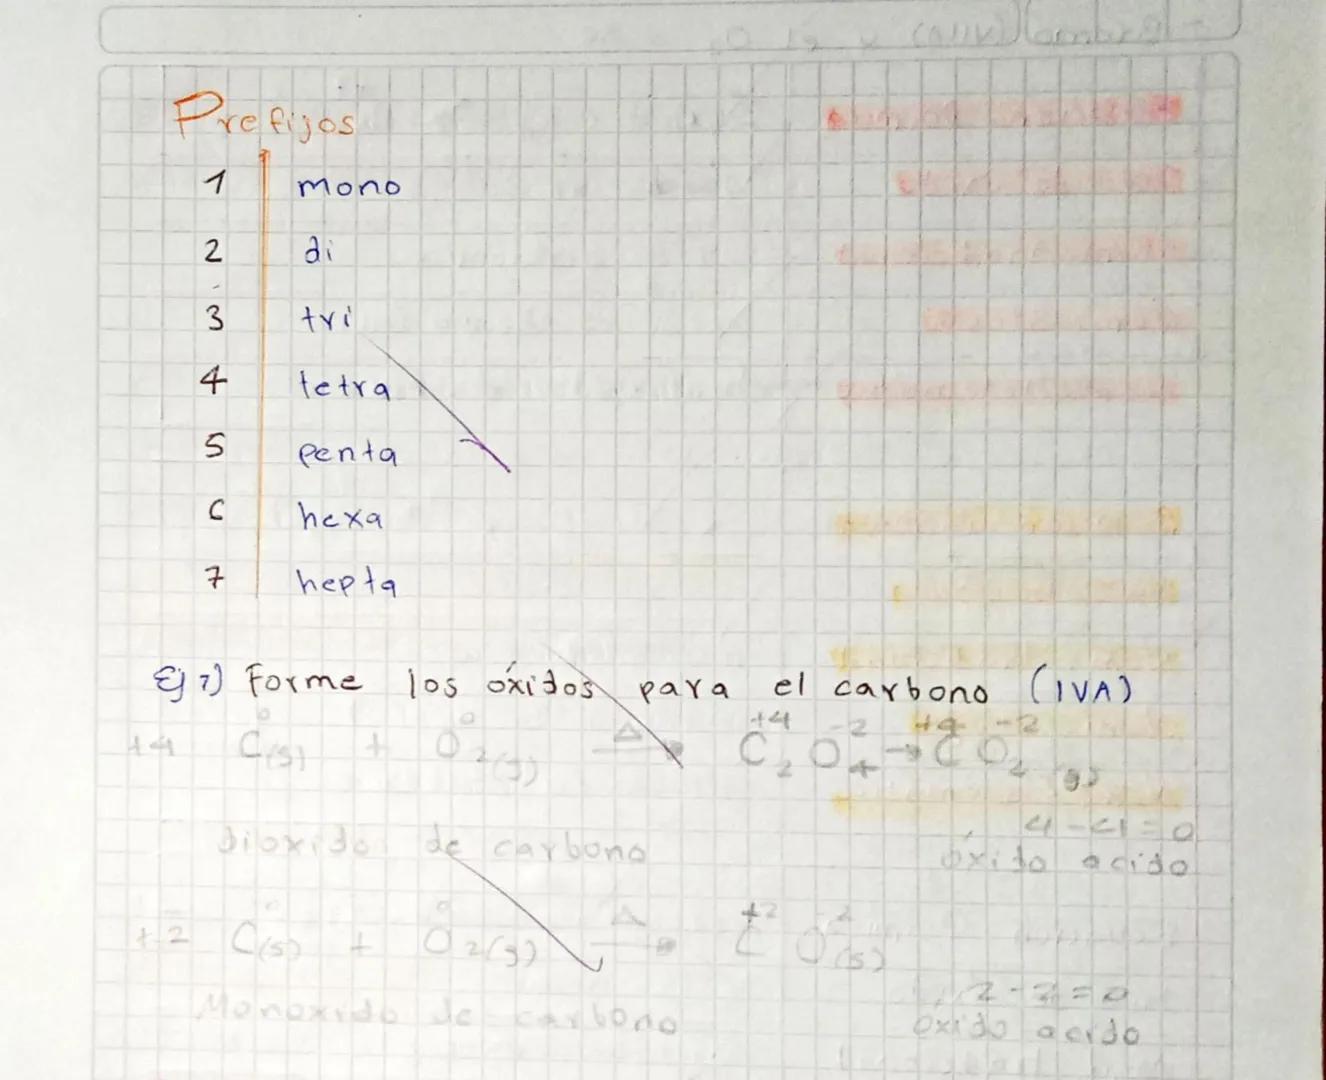 Prefijos
1 mono
2 di
3 tri
4 tetra
5 penta
6 hexa
7 hepta
Ej 1) Forme los óxidos para el carbono (IVA)
+4 C⁰(s) + O⁰₂(g) Δ→ C₂⁺⁴O₄⁻² → C⁺⁴O₂⁻²(g)
4-4=0
dioxido de carbono óxido acido
+2 C⁰(s) + O⁰₂(g) Δ→ C⁺²O⁻²(s)
2-2=0
Monoxido de carbono oxido acido